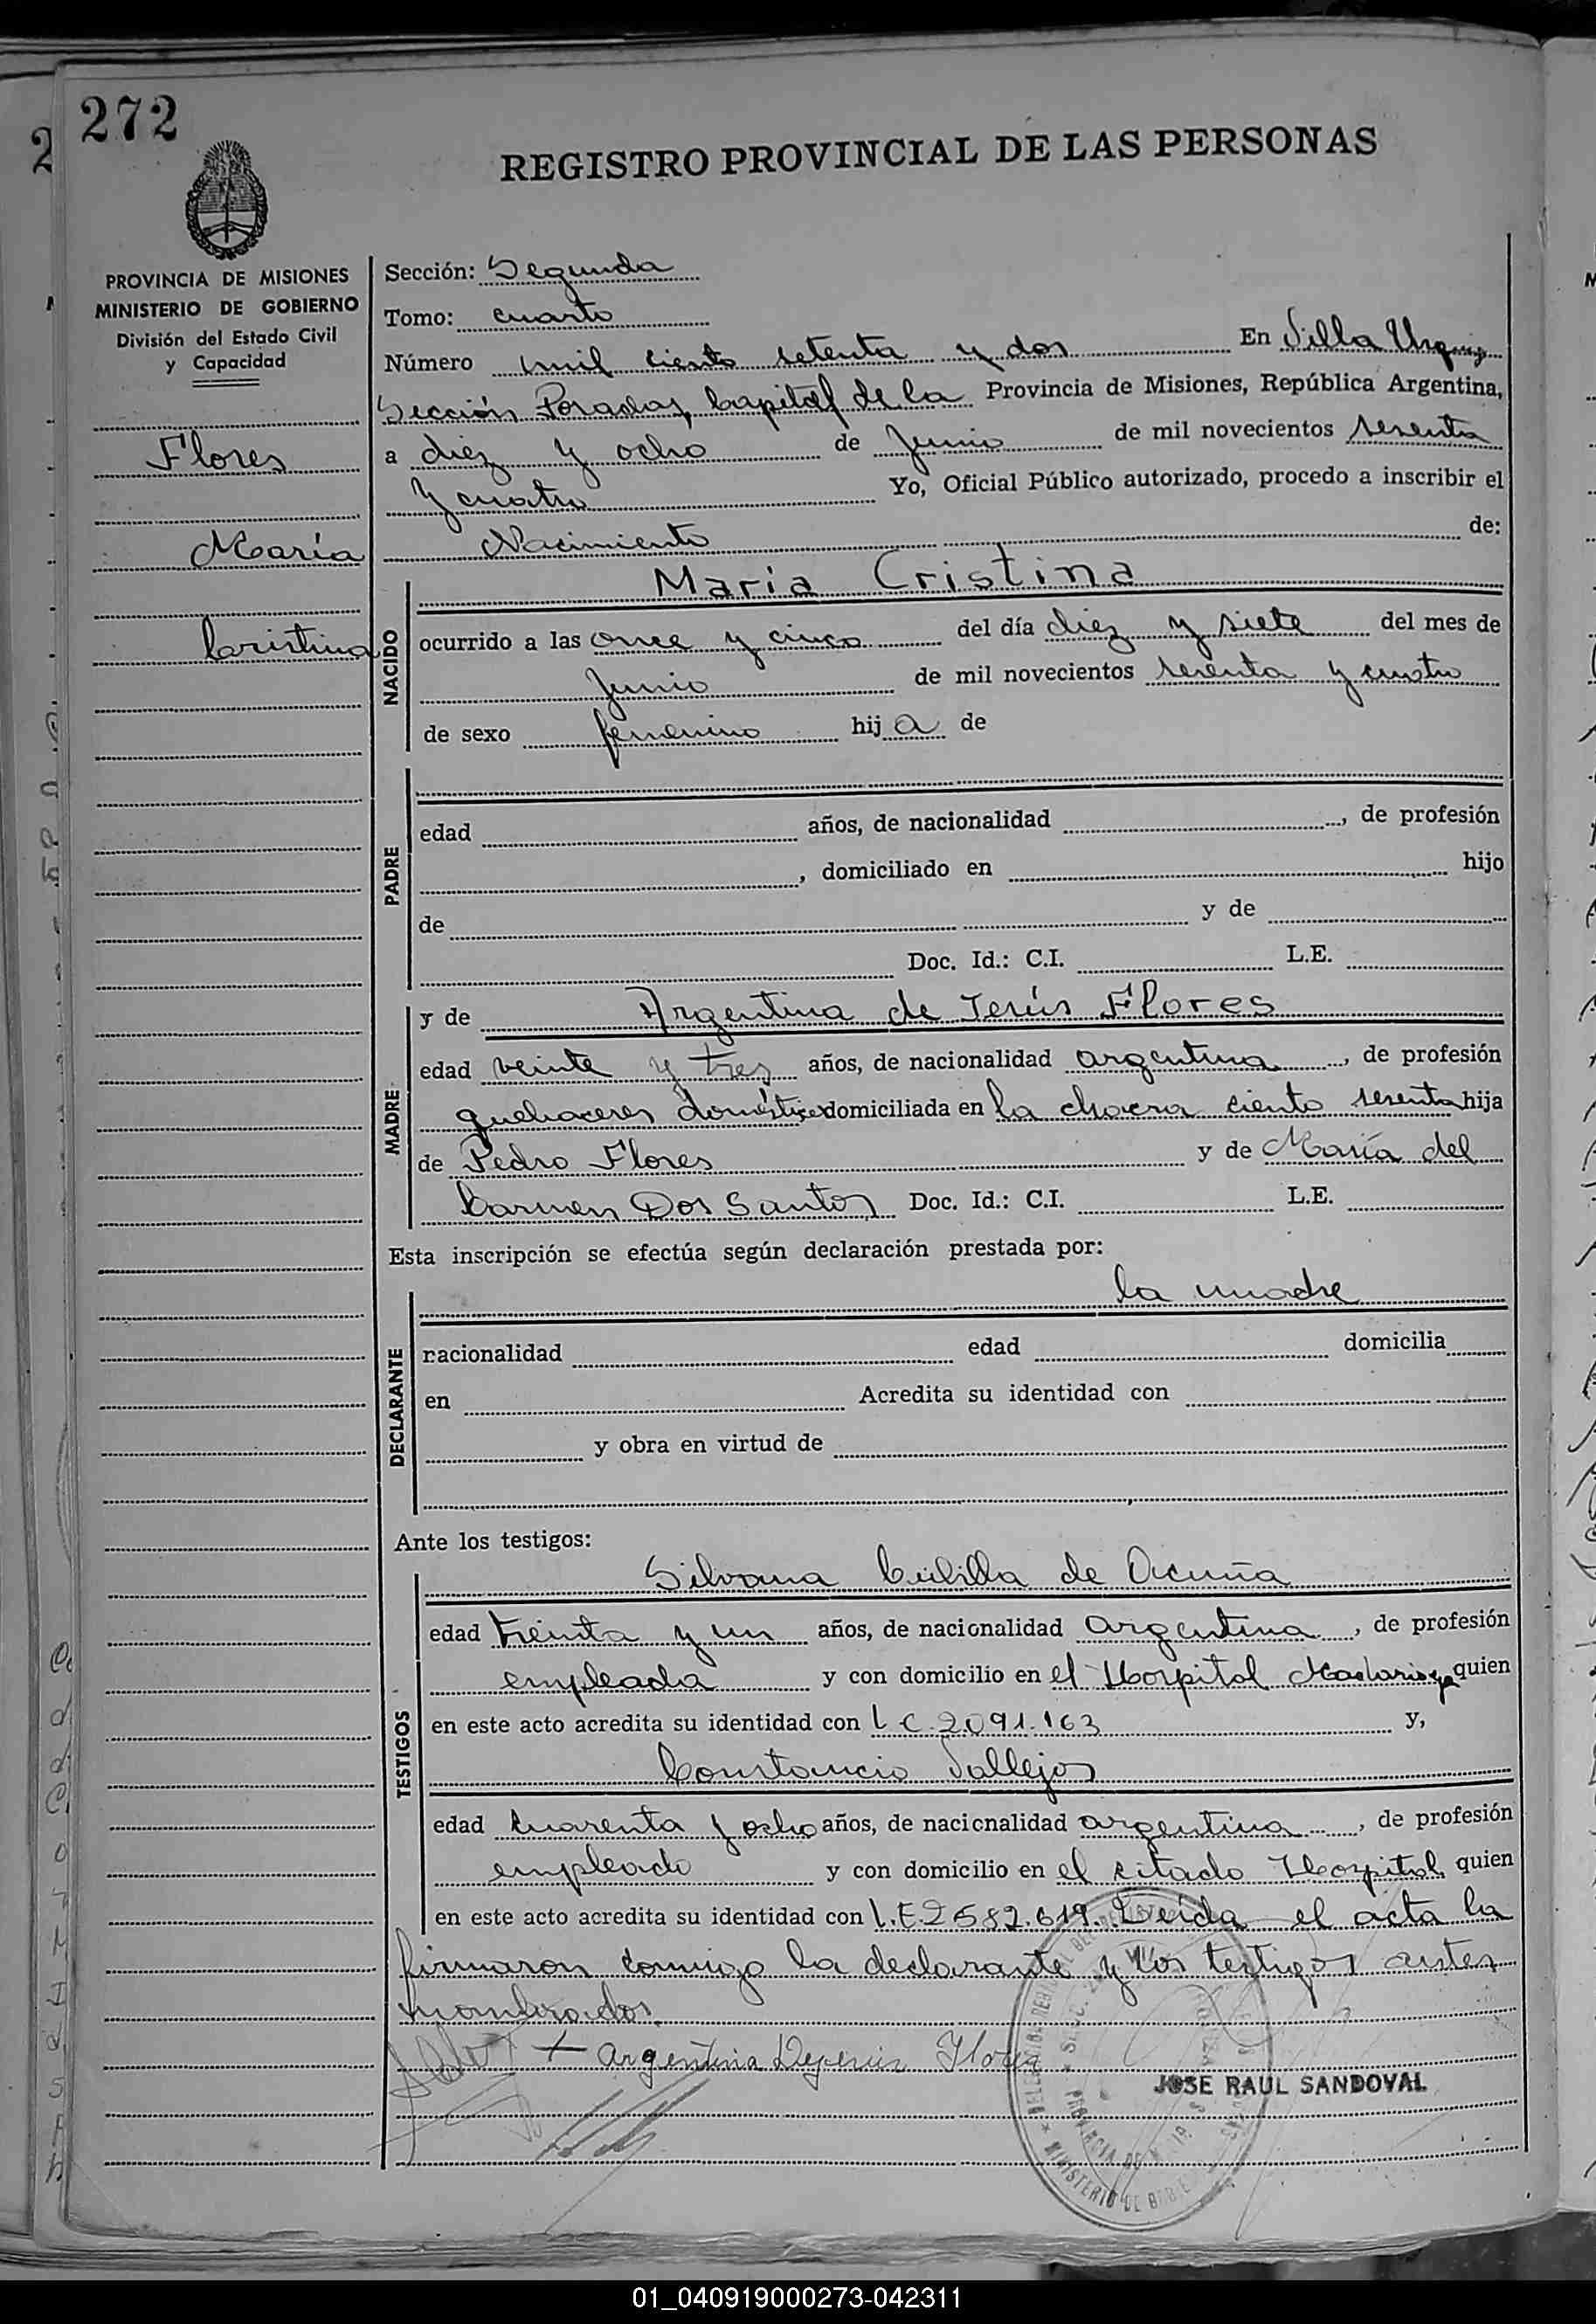 272
REGISTRO PROVINCIAL DE LAS PERSONAS
PROVINCIA DE MISIONES
MINISTERIO DE GOBIERNO
División del Estado Civil
y Capacidad
Flores
María
Cristina
Sección: Segunda
Tomo: cuarto
Número mil ciento setenta y dos En Villa Urquiza
Sección Posadas, Capital de la Provincia de Misiones, República Argentina,
a diez y ocho de Junio de mil novecientos sesenta
y cuatro Yo, Oficial Público autorizado, procedo a inscribir el
Nacimiento de:
NACIDO
María Cristina
ocurrido a las once y cinco del día diez y siete del mes de
Junio de mil novecientos sesenta y cuatro
de sexo femenino hija de
PADRE
edad años, de nacionalidad , de profesión
, domiciliado en hijo
de y de
Doc. Id.: C.I. L.E.
MADRE
y de Argentina de Jesús Flores
edad veinte y tres años, de nacionalidad argentina, de profesión
quehaceres domésticos domiciliada en la chacra ciento sesenta hija
de Pedro Flores y de María del
Carmen Dos Santos Doc. Id.: C.I. L.E.
Esta inscripción se efectúa según declaración prestada por:
DECLARANTE
la madre
nacionalidad edad domicilia
en Acredita su identidad con
y obra en virtud de
Ante los testigos:
TESTIGOS
Silvana de Acuña
edad treinta y un años, de nacionalidad argentina, de profesión
empleada y con domicilio en el Hospital Madariaga quien
en este acto acredita su identidad con L.C. 2.091.163 y,
Constancio Vallejos
edad cuarenta y ocho años, de nacionalidad argentina, de profesión
empleado y con domicilio en el citado Hospital quien
en este acto acredita su identidad con L.E. 2582.619. Leída el acta la
firmaron conmigo la declarante y los testigos antes
nombrados.
+ Argentina Flores
JOSE RAUL SANDOVAL
01_040919000273-042311